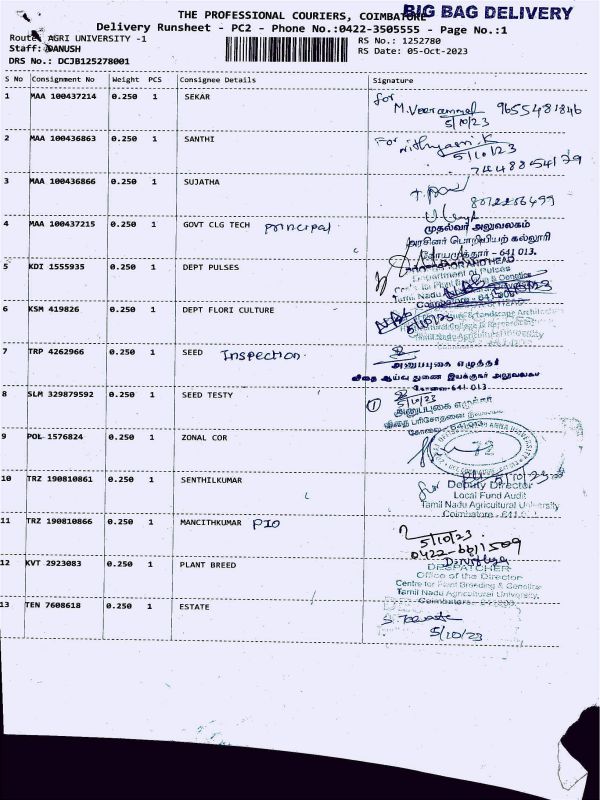 THE PROFESSIONAL COURIERS, COIMBATORE
BIG BAG DELIVERY
Delivery Runsheet - PC2 - Phone No.:0422-3505555 - Page No.:1
Route: AGRI UNIVERSITY -1
RS No.: 1252780
Staff: DANUSH
RS Date: 05-Oct-2023
DRS No.: DCJB125278001
S No Consignment No Weight PCS Consignee Details Signature
1 MAA 100437214 0.250 1 SEKAR
for M.Veerammal 9655481846
5/10/23
2 MAA 100436863 0.250 1 SANTHI
For Nithyasri.K
5/10/23
7448854179
3 MAA 100436866 0.250 1 SUJATHA
4 MAA 100437215 0.250 1 GOVT CLG TECH principal
முதல்வர் அலுவலகம்
அரசினர் பொறியியற் கல்லூரி
கோயமுத்தூர் - 641 013.
5 KDI 1555935 0.250 1 DEPT PULSES
Department of Pulses
6 KSM 419826 0.250 1 DEPT FLORI CULTURE
5/10/23
7 TRP 4262966 0.250 1 SEED Inspection
அனுப்புகை எழுத்தர்
விதை ஆய்வு துணை இயக்குகர் அலுவலகம்
கோவை-641 013
8 SLM 329879592 0.250 1 SEED TESTY
5/10/23
அனுப்புகை எழுத்தர்
9 POL 1576824 0.250 1 ZONAL COR
72
10 TRZ 190810861 0.250 1 SENTHILKUMAR
5/10/23
for Deputy Director
Local Fund Audit
Tamil Nadu Agricultural University
11 TRZ 190810866 0.250 1 MANCITHKUMAR PIO
5/10/23
12 KVT 2923083 0.250 1 PLANT BREED
DESPATCHER
Office of the Director
Centre for Plant Breeding & Genetics
Tamil Nadu Agricultural University,
13 TEN 7608618 0.250 1 ESTATE
5/10/23